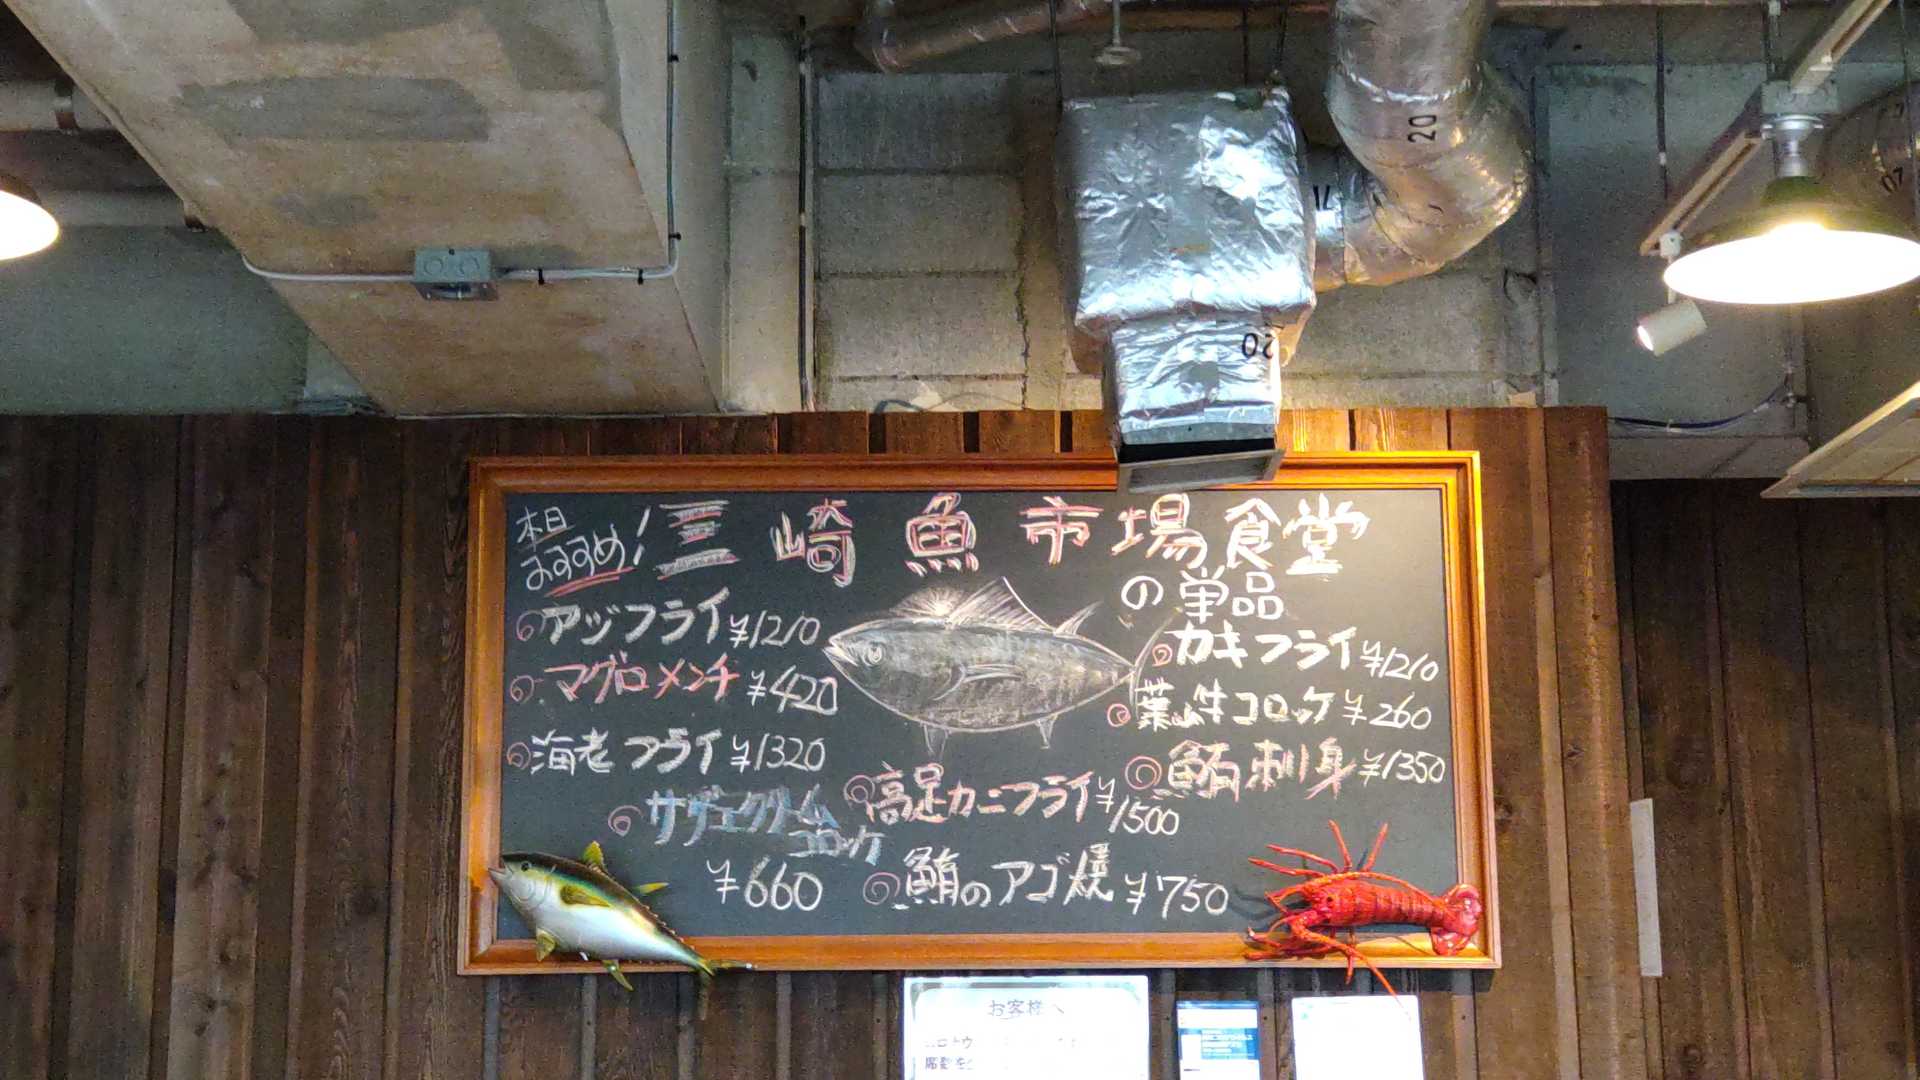 本日
おすすめ!
三崎魚市場食堂
の単品
アジフライ ¥1210
マグロメンチ ¥420
海老フライ ¥1320
サザエクリーム
コロッケ
¥660
高足カニフライ ¥1500
鮪のアゴ焼 ¥750
カキフライ ¥1210
葉山牛コロッケ ¥260
鮪刺身 ¥1350
20
20
お客様へ